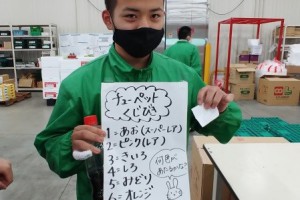 チューペット
くじびき
1=あお(スーパーレア)
2=ピンク(レア)
3=きいろ
4=しろ
5=みどり
6=オレンジ
何色が
あたるかな?